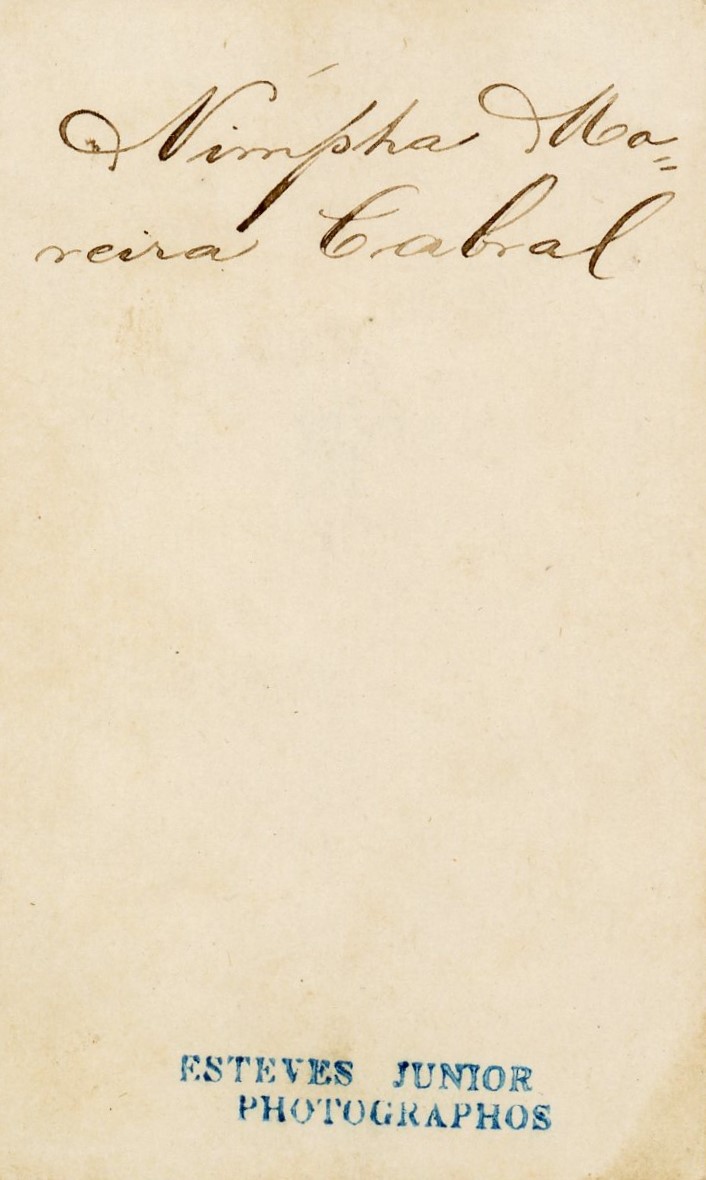 Nimpha Mo=
reira Cabral
ESTEVES JUNIOR
PHOTOGRAPHOS